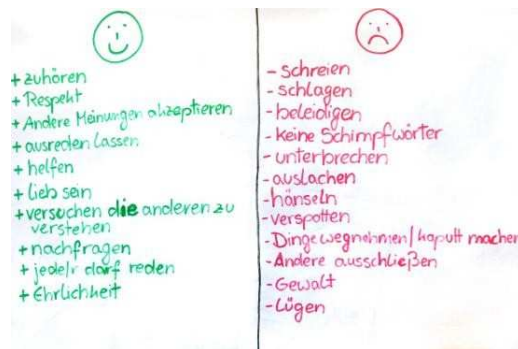 + zuhören
+ Respekt
+ Andere Meinungen akzeptieren
+ ausreden lassen
+ helfen
+ lieb sein
+ versuchen die anderen zu
verstehen
+ nachfragen
+ jede/r darf reden
+ Ehrlichkeit
- schreien
- schlagen
- beleidigen
- keine Schimpfwörter
- unterbrechen
- auslachen
- hänseln
- verspotten
- Dinge wegnehmen/kaputt machen
- Andere ausschließen
- Gewalt
- Lügen